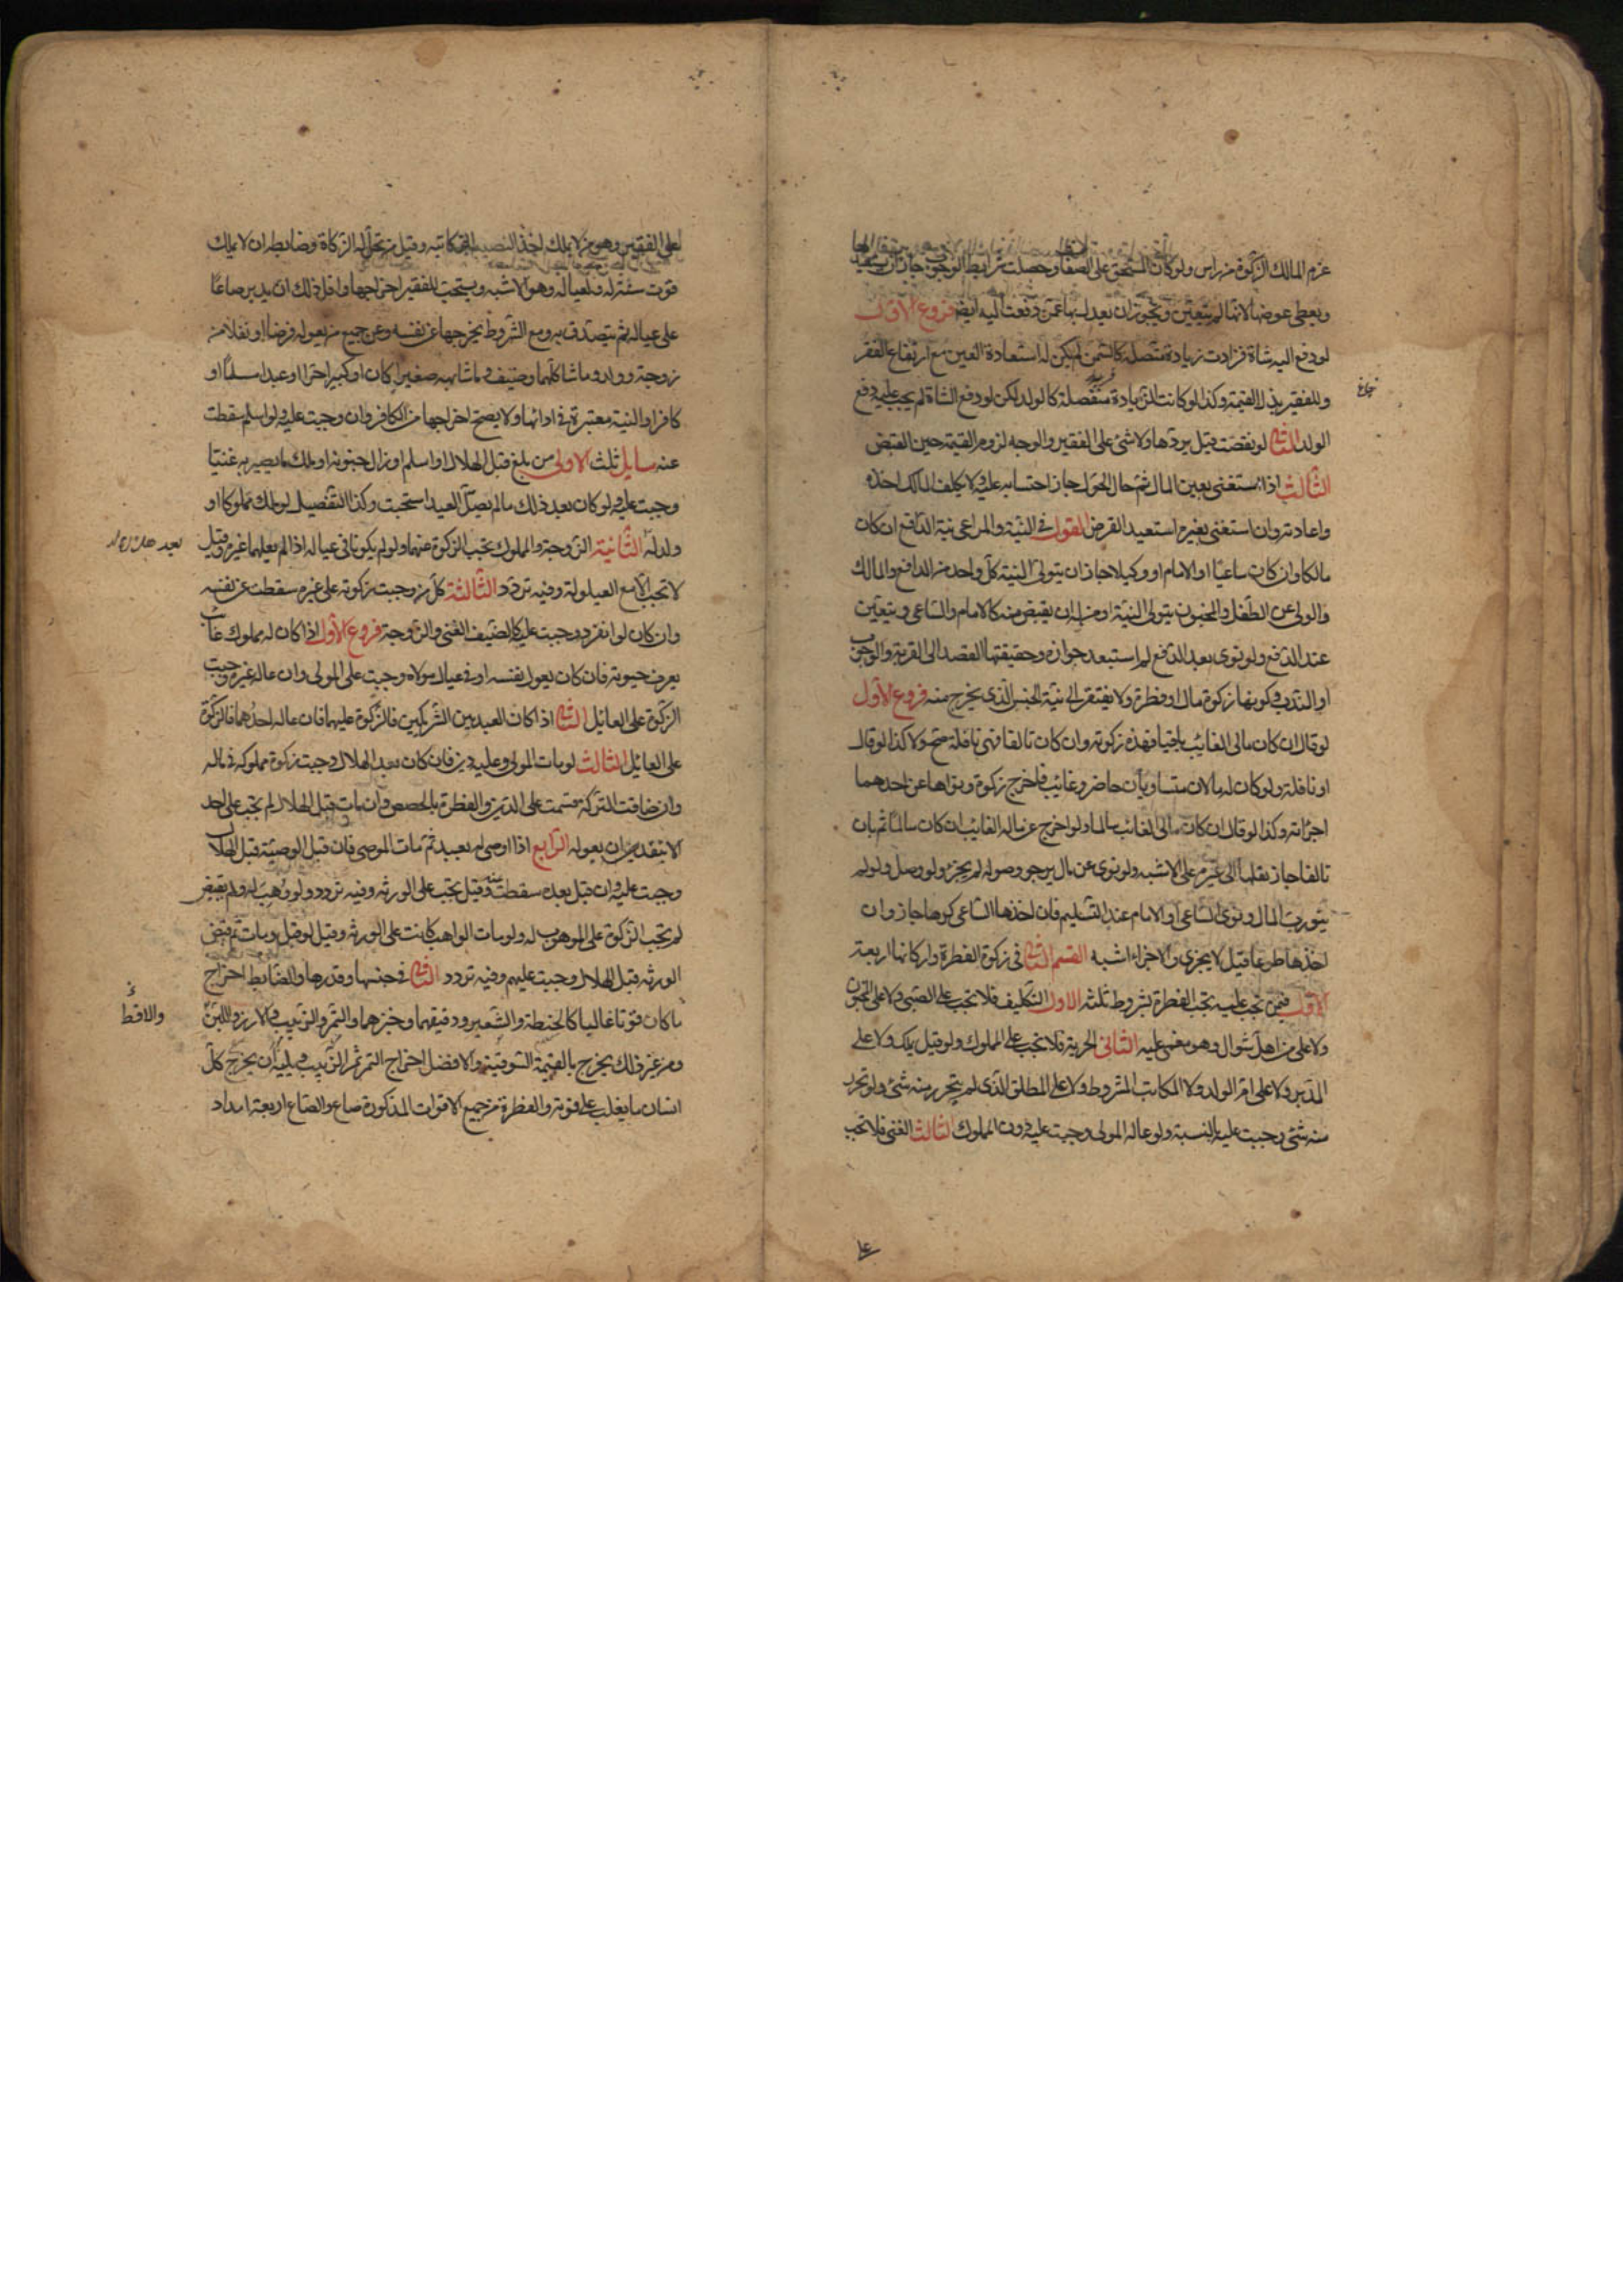 غرم المالك الزكوة من راس ولو كان المستحق على الصفات وحصلت شرايط الوجوب جاز ان يستعيدها
ويعطى عوضها لانها لم يتعين ويجوز ان يعدل بها عمن دفعت اليه ايضا فروع الاول
لو دفع اليه شاة فزادت زيادة متصلة كالسمن لم يكن له استعادة العين مع ارتفاع الفقر
وللفقير بذل القيمة وكذا لو كانت الزيادة منفصلة كالولد لكن لو دفع الشاة لم يجب عليه دفع
الولد الثانى لو نقصت قيل بردها ولا شئ على الفقير والوجه لزوم القيمة حين القبض
الثالث اذا استغنى بعين المال ثم حال الحول جاز احتسابه عليه ولا يكلف المالك اخذه
واعادته وان استغنى بغيره استعيد القرض القول فى النية والمراعى نية الدافع ان كان
مالكا وان كان ساعيا او الامام او وكيلا جاز ان يتولى النية كل واحد من الدافع والمالك
والولى عن الطفل والمجنون يتولى النية او من له ان يقبض منه كالامام والساعى ويتعين
عند الدفع ولو نوى بعد الدفع لم استبعد جوازه وحقيقتها القصد الى القربة والوجوب
او الندب وكونها زكوة مال او فطرة ولا يفتقر الى نية الجنس الذى يخرج منه فروع الاول
لو قال ان كان مالى الغائب باقيا فهذه زكوته وان كان تالفا فهى نافلة صح ولا كذا لو قال
او نافلة ولو كان له مالان متساويان حاضر وغائب فاخرج زكوة ونواها عن احدهما
اجزاته وكذا لو قال ان كان مالى الغائب سالما ولو اخرج عن ماله الغائب ان كان سالما ثم بان
تالفا جاز نقلها الى غيره على الاشبه ولو نوى عن مال يرجو وصوله لم يجز ولو وصل ولو لم
ينو رب المال ونوى الساعى او الامام عند التسليم فان اخذها الساعى كرها جاز وان
اخذها طوعا قيل لا يجزى والاجزاء اشبه القسم الثانى فى زكوة الفطرة واركانها اربعة
الاول فيمن تجب عليه تجب الفطرة بشروط ثلثه الاول التكليف فلا تجب على الصبى ولا على المجنون
ولا على من اهل شوال وهو مغمى عليه الثانى الحرية فلا تجب على المملوك ولو قيل يملك ولا على
المدبر ولا على ام الولد ولا المكاتب المشروط ولا على المطلق الذى لم يتحرر منه شئ ولو تحرر
منه شئ وجبت عليه بالنسبة ولو عاله المولى وجبت عليه دون المملوك الثالث الغنى فلا تجب
على الفقير وهو من لا يملك احد النصب الزكاتيه وقيل من تحل له الزكاة وضابطه ان لا يملك
قوت سنة له ولعياله وهو الاشبه ويستحب للفقير اخراجها واقل ذلك ان يدير صاعا
على عياله ثم يتصدق به ومع الشروط يخرجها عن نفسه وعن جميع من يعوله فرضا او نفلا من
زوجة وولد وما شاكلهما وضيف وما شابهه صغيرا كان او كبيرا حرا او عبدا مسلما او
كافرا والنية معتبرة فى ادائها ولا يصح اخراجها من الكافر وان وجبت عليه ولو اسلم سقطت
عنه مسايل ثلث الاولى من بلغ قبل الهلال او اسلم او زال جنونه او ملك ما يصير به غنيا
وجبت عليه ولو كان بعد ذلك ما لم يصل العيد استحبت وكذا التفصيل لو ملك مملوكا او
ولد له الثانية الزوجة والمملوك تجب الزكوة عنهما ولو لم يكونا فى عياله اذا لم يعلهما غيره وقيل
لا تجب الا مع العيلولة وفيه تردد الثالثة كل من وجبت زكوته على غيره سقطت عن نفسه
وان كان لو انفرد وجبت عليه كالضيف الغنى والزوجة فروع الاول اذا كان له مملوك غائب
يعرف حيوته فان كان يعول نفسه او فى عيال مولاه وجبت على المولى وان عاله غيره وجبت
الزكوة على العائل الثانى اذا كان العبد بين الشريكين فالزكوة عليهما فان عاله احدهما فالزكوة
على العائل الثالث لو مات المولى وعليه دين فان كان بعد الهلال وجبت زكوة مملوكه فى ماله
وان ضاقت التركة قسمت على الدين والفطرة بالحصص وان مات قبل الهلال لم تجب على احد
الا بتقدير ان يعوله الرابع اذا اوصى له بعبد ثم مات الموصى فان قبل الوصية قبل الهلال
وجبت عليه وان قبل بعده سقطت وقيل تجب على الورثه وفيه تردد ولو وهب له ولم يقبض
لم تجب الزكوة على الموهوب له ولو مات الواهب كانت على الورثه وقيل لو قبل ومات ثم قبض
الورثه قبل الهلال وجبت عليهم وفيه تردد الثانى فى جنسها وقدرها والضابط اخراج
ما كان قوتا غالبا كالحنطة والشعير ودقيقهما وخبزهما والتمر والزبيب والارز واللبن
والاقط
ومن غير ذلك يخرج بالقيمة السوقية والافضل اخراج التمر ثم الزبيب ويليه ان يخرج كل
انسان ما يغلب على قوته والفطرة من جميع الاقوات المذكورة صاع والصاع اربعة امداد